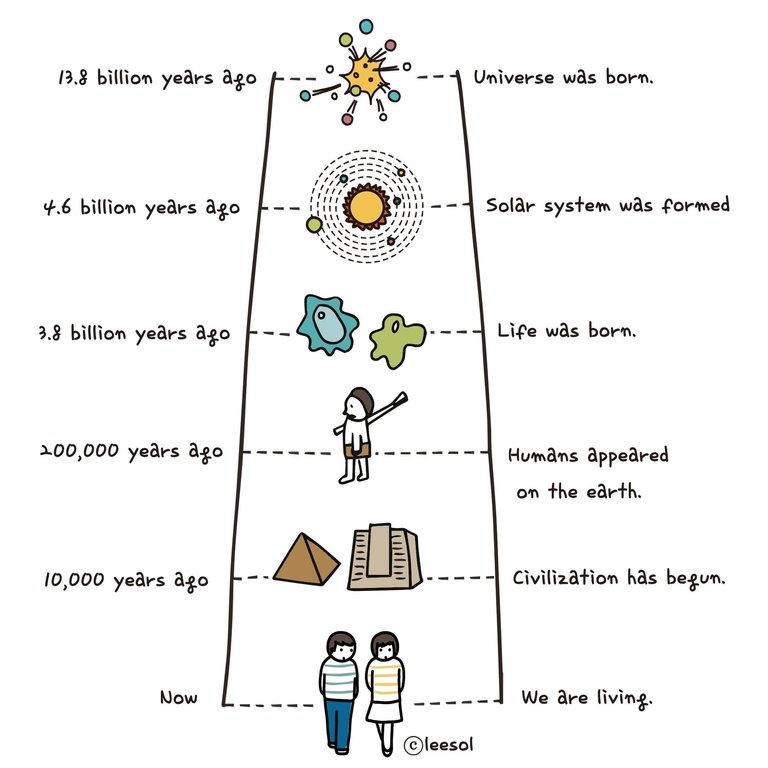 13.8 billion years ago
Universe was born.
4.6 billion years ago
Solar system was formed
3.8 billion years ago
Life was born.
200,000 years ago
Humans appeared
on the earth.
10,000 years ago
Civilization has begun.
Now
We are living.
©leesol